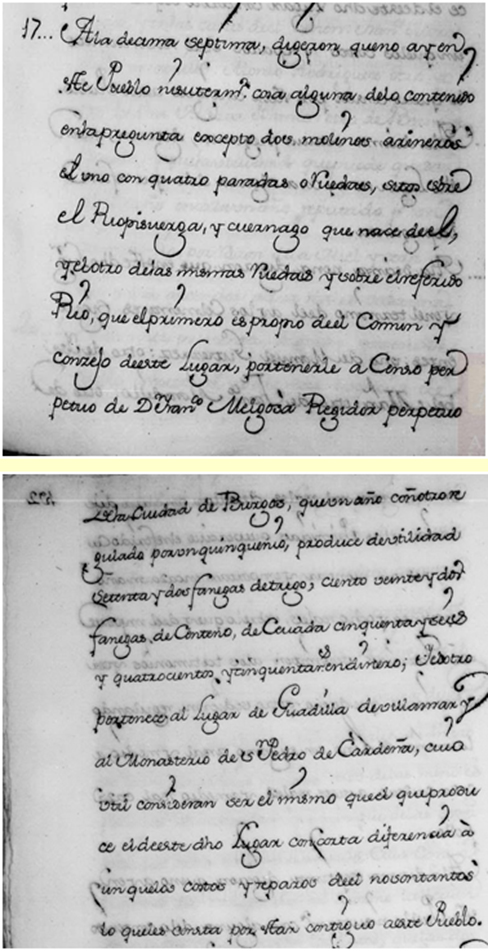 17... A la decima septima, digeron que no ay en
este Pueblo ni su termº. cosa alguna, delo contenido
en la pregunta excepto dos, molinos arineros
el uno con quatro paradas o Ruedas, sitos sobre
el Rio pisuerga, y cuernago que nace de el,
y el otro de las mismas Ruedas y sobre el referido
Rio, que el primero es propio de el Comun y
conzejo de este Lugar, por tenerle a Censo per
petuo de Dn Franco Melgosa Regidor perpetuo
de la Ciudad de Burgos, que un año con otro re
gulado por un quinquenio, produce de utilidad
setenta y dos fanegas de trigo, ciento veinte y dos
fanegas de Zenteno, de Ceuada cinquenta y seis
y quatrocientos y cinquenta rs en dinero; y el otro
pertenece al Lugar de Guadilla de villamar y
al Monasterio de Sn Pedro de Cardeña, cuia
util consideran ser el mismo que el que produ
ce el de este dho Lugar con corta diferencia a
unque los costos y reparos de el no son tantos
lo que les consta por estar contiguo a este Pueblo.